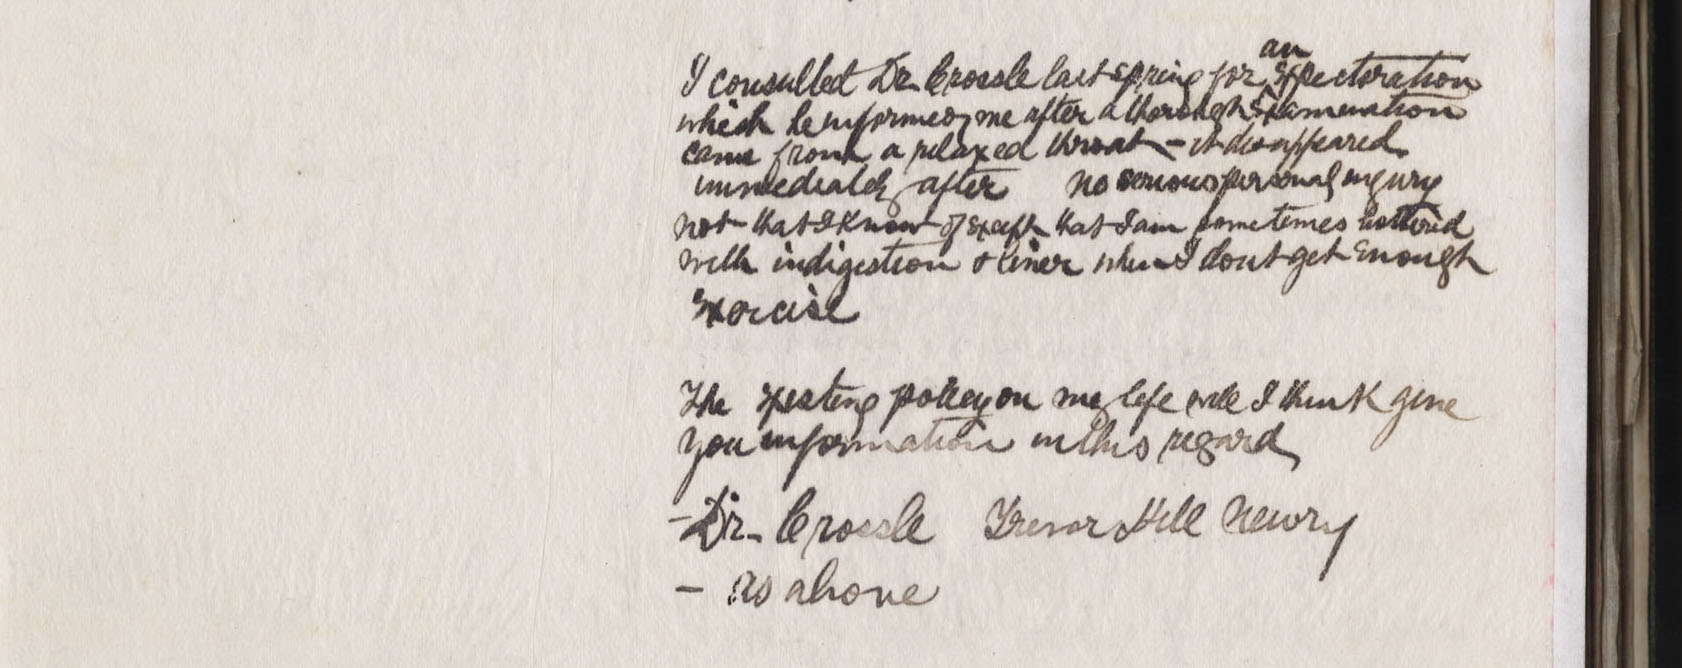 an
I consulted Dr. Crossle last spring for expectoration
which he informed me after a thorough examination
came from a relaxed throat - it disappeared
immediately after no serious personal injury
not that I know of except that I am sometimes bothered
with indigestion & liver when I dont get enough
exercise
The existing policy on my life will I think give
you information in this regard
- Dr. Crossle Trevor Hill Newry
- as above